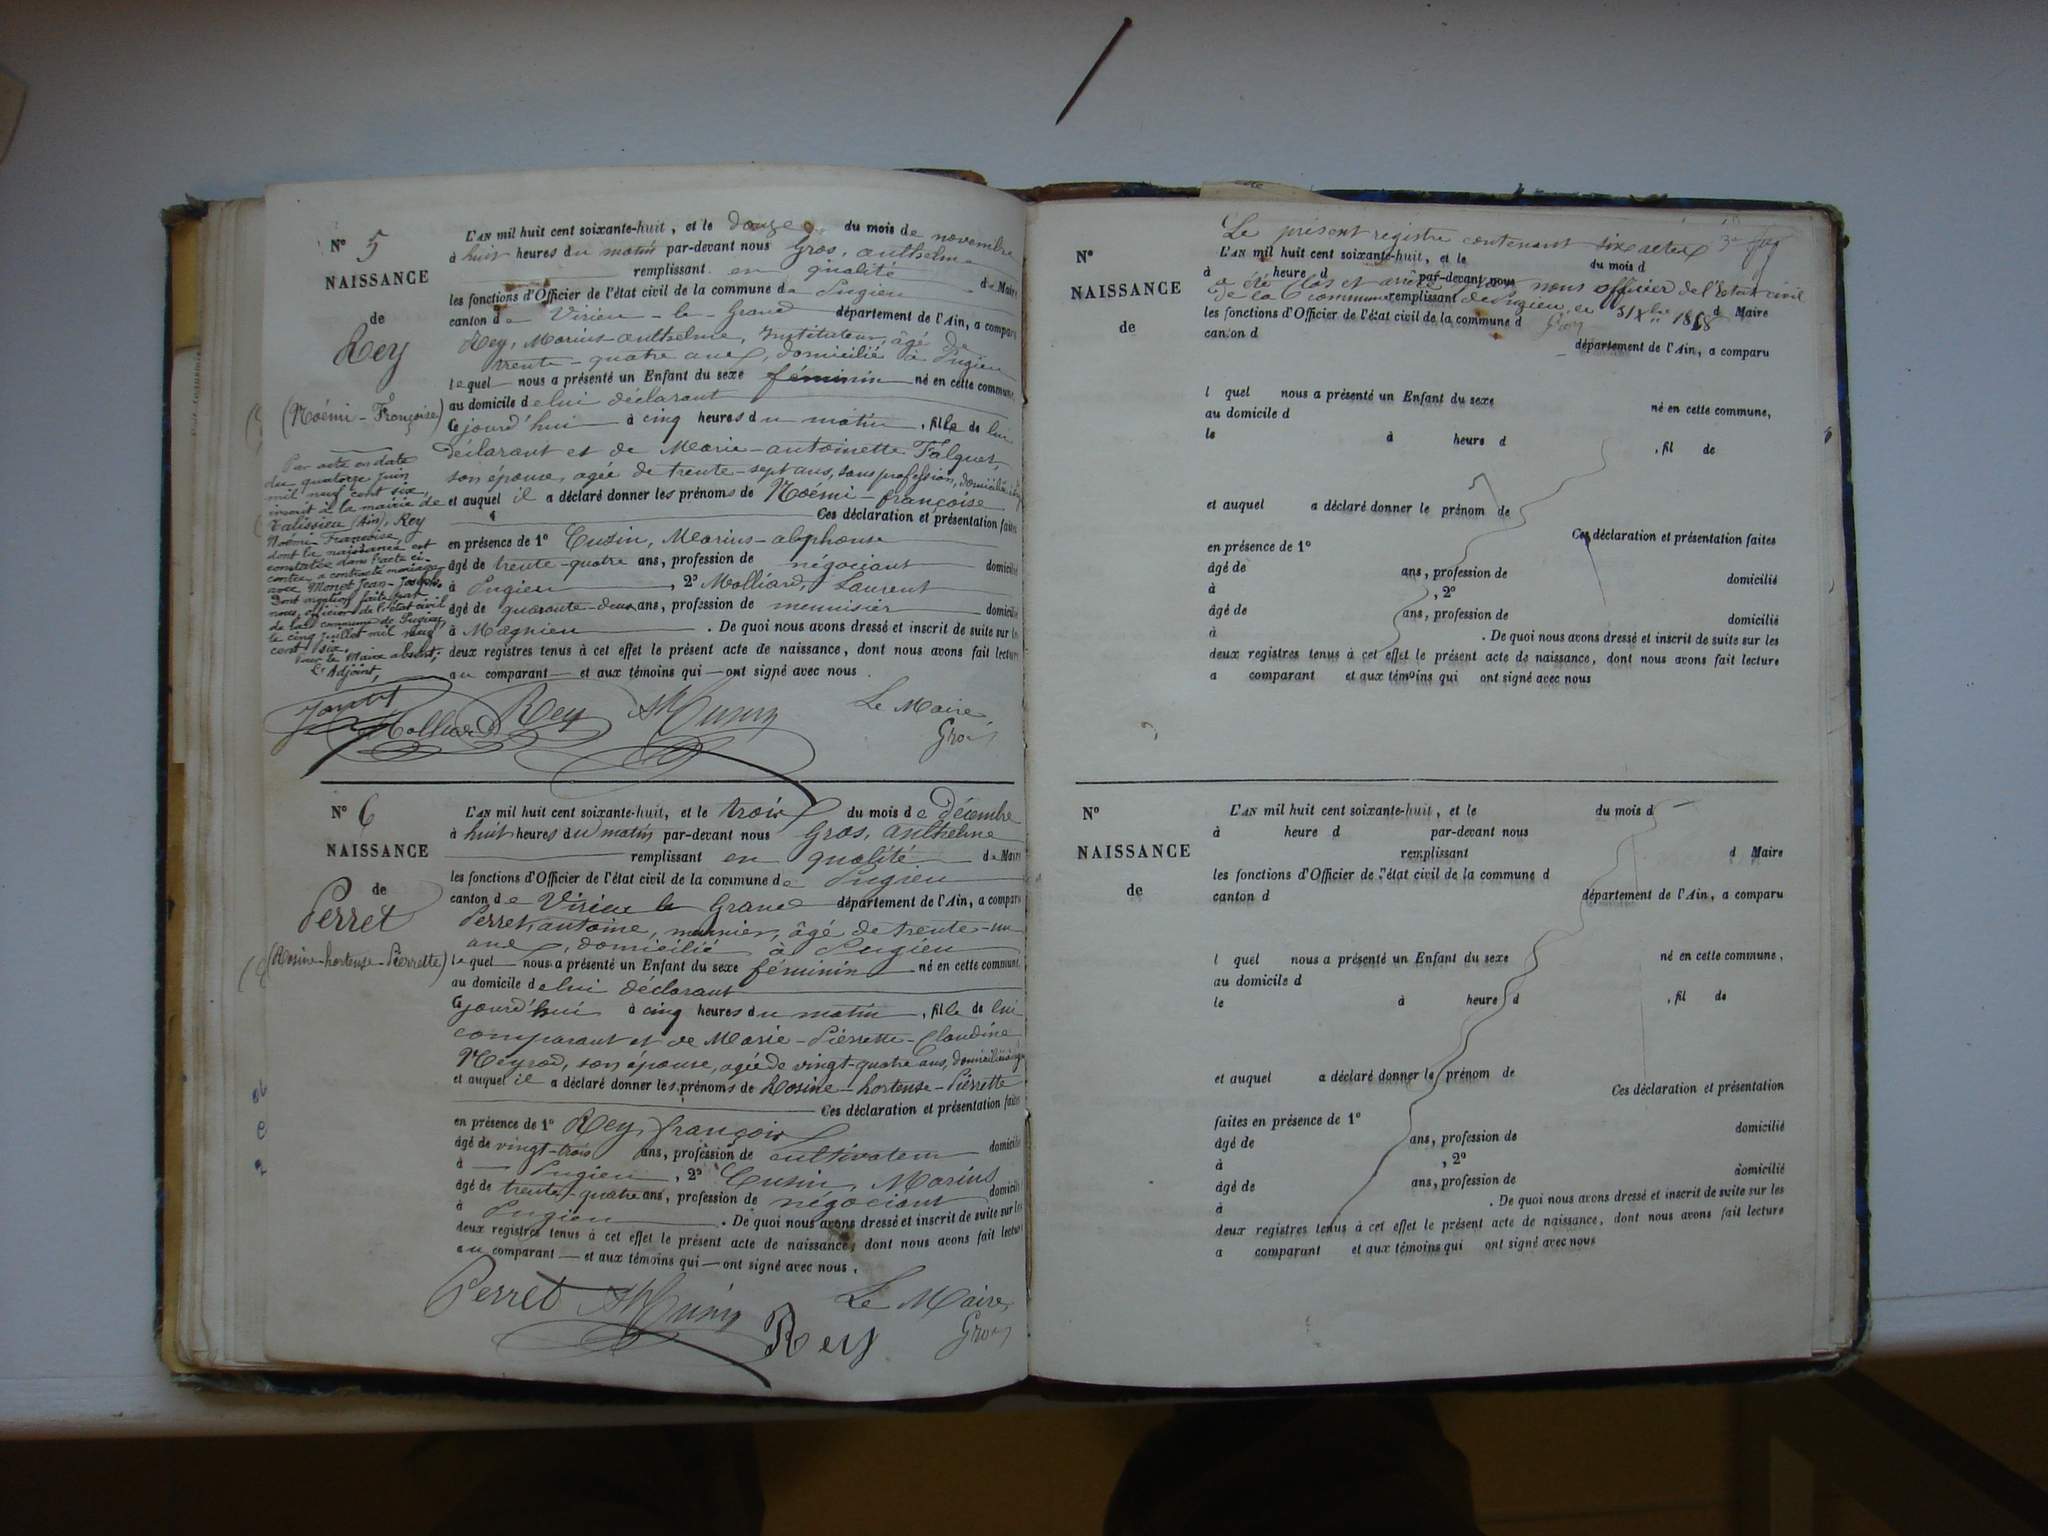 N° 5
NAISSANCE
de
Rey
(Noémi-Françoise)
Par acte en date
du quatorze juin
mil neuf cent six,
inscrit à la mairie de
Talissieu (Ain), Rey
Noémi-Françoise,
dont la naissance est
constatée dans l'acte ci-
contre, a contracté mariage
avec Monet Jean-Joseph.
Dont mention faite par
nous, officier de l'état civil
de la commune de Pugieu,
le cinq juillet mil neuf
cent six.
Pour le Maire absent,
L'Adjoint,
L'AN mil huit cent soixante-huit, et le douze du mois de novembre
à huit heures du matin par-devant nous Gros, anthelme
remplissant en qualité de Maire
les fonctions d'Officier de l'état civil de la commune de Pugieu
canton de Virieu-le-Grand département de l'Ain, a comparu
Rey, Marius-anthelme, Instituteur, âgé de
trente-quatre ans, domicilié à Pugieu
lequel nous a présenté un Enfant du sexe féminin né en cette commune,
au domicile de lui déclarant
Ce jourd'hui à cinq heures du matin, fille de lui
déclarant et de Marie-antoinette Falquet,
son épouse, agée de trente-sept ans, sans profession, domiciliée
et auquel il a déclaré donner les prénoms de Noémi-françoise
Ces déclaration et présentation faites
en présence de 1° Cusin, Marius-alphonse
âgé de trente-quatre ans, profession de négociant domicilié
à Pugieu, 2° Molliard, Laurent
âgé de quarante-deux ans, profession de menuisier domicilié
à Magnieu. De quoi nous avons dressé et inscrit de suite sur les
deux registres tenus à cet effet le présent acte de naissance, dont nous avons fait lecture
au comparant et aux témoins qui ont signé avec nous.
Molliard Rey Cusin Le Maire,
Gros
N° 6
NAISSANCE
de
Perret
(Rosine-hortense-Pierrette)
L'AN mil huit cent soixante-huit, et le trois du mois de Décembre
à huit heures du matin par-devant nous Gros, anthelme
remplissant en qualité de Maire
les fonctions d'Officier de l'état civil de la commune de Pugieu
canton de Virieu le Grand département de l'Ain, a comparu
Perret, antoine, meunier, âgé de trente-un
ans, domicilié à Pugieu
lequel nous a présenté un Enfant du sexe féminin né en cette commune,
au domicile de lui déclarant
Ce jourd'hui à cinq heures du matin, fille de lui
comparant et de Marie-Pierrette-Claudine
Meyrod, son épouse, agée de vingt-quatre ans, domiciliée
et auquel il a déclaré donner les prénoms de Rosine-hortense-Pierrette
Ces déclaration et présentation faites
en présence de 1° Rey, françois
âgé de vingt-trois ans, profession de cultivateur domicilié
à Pugieu, 2° Cusin, Marius
âgé de trente-quatre ans, profession de négociant domicilié
à Pugieu. De quoi nous avons dressé et inscrit de suite sur les
deux registres tenus à cet effet le présent acte de naissance, dont nous avons fait lecture
au comparant et aux témoins qui ont signé avec nous.
Perret Cusin Le Maire,
Rey Gros
Le présent registre contenant six actes
a été clos et arrêté par nous officier de l'Etat civil
de la Commune de Pugieu, le 31 Xbre 1868
Gros
N°
NAISSANCE
de
L'AN mil huit cent soixante-huit, et le du mois d
à heure d par-devant nous
remplissant d Maire
les fonctions d'Officier de l'état civil de la commune d
canton d
département de l'Ain, a comparu
l quel nous a présenté un Enfant du sexe né en cette commune,
au domicile d
le à heure d , fil de
et auquel a déclaré donner le prénom de
Ces déclaration et présentation faites
en présence de 1°
âgé de ans, profession de domicilié
à , 2°
âgé de ans, profession de domicilié
à . De quoi nous avons dressé et inscrit de suite sur les
deux registres tenus à cet effet le présent acte de naissance, dont nous avons fait lecture
a comparant et aux témoins qui ont signé avec nous
N°
NAISSANCE
de
L'AN mil huit cent soixante-huit, et le du mois d
à heure d par-devant nous
remplissant d Maire
les fonctions d'Officier de l'état civil de la commune d
canton d département de l'Ain, a comparu
l quel nous a présenté un Enfant du sexe né en cette commune,
au domicile d
le à heure d , fil de
et auquel a déclaré donner le prénom de
Ces déclaration et présentation
faites en présence de 1°
âgé de ans, profession de domicilié
à , 2°
âgé de ans, profession de domicilié
à . De quoi nous avons dressé et inscrit de suite sur les
deux registres tenus à cet effet le présent acte de naissance, dont nous avons fait lecture
a comparant et aux témoins qui ont signé avec nous